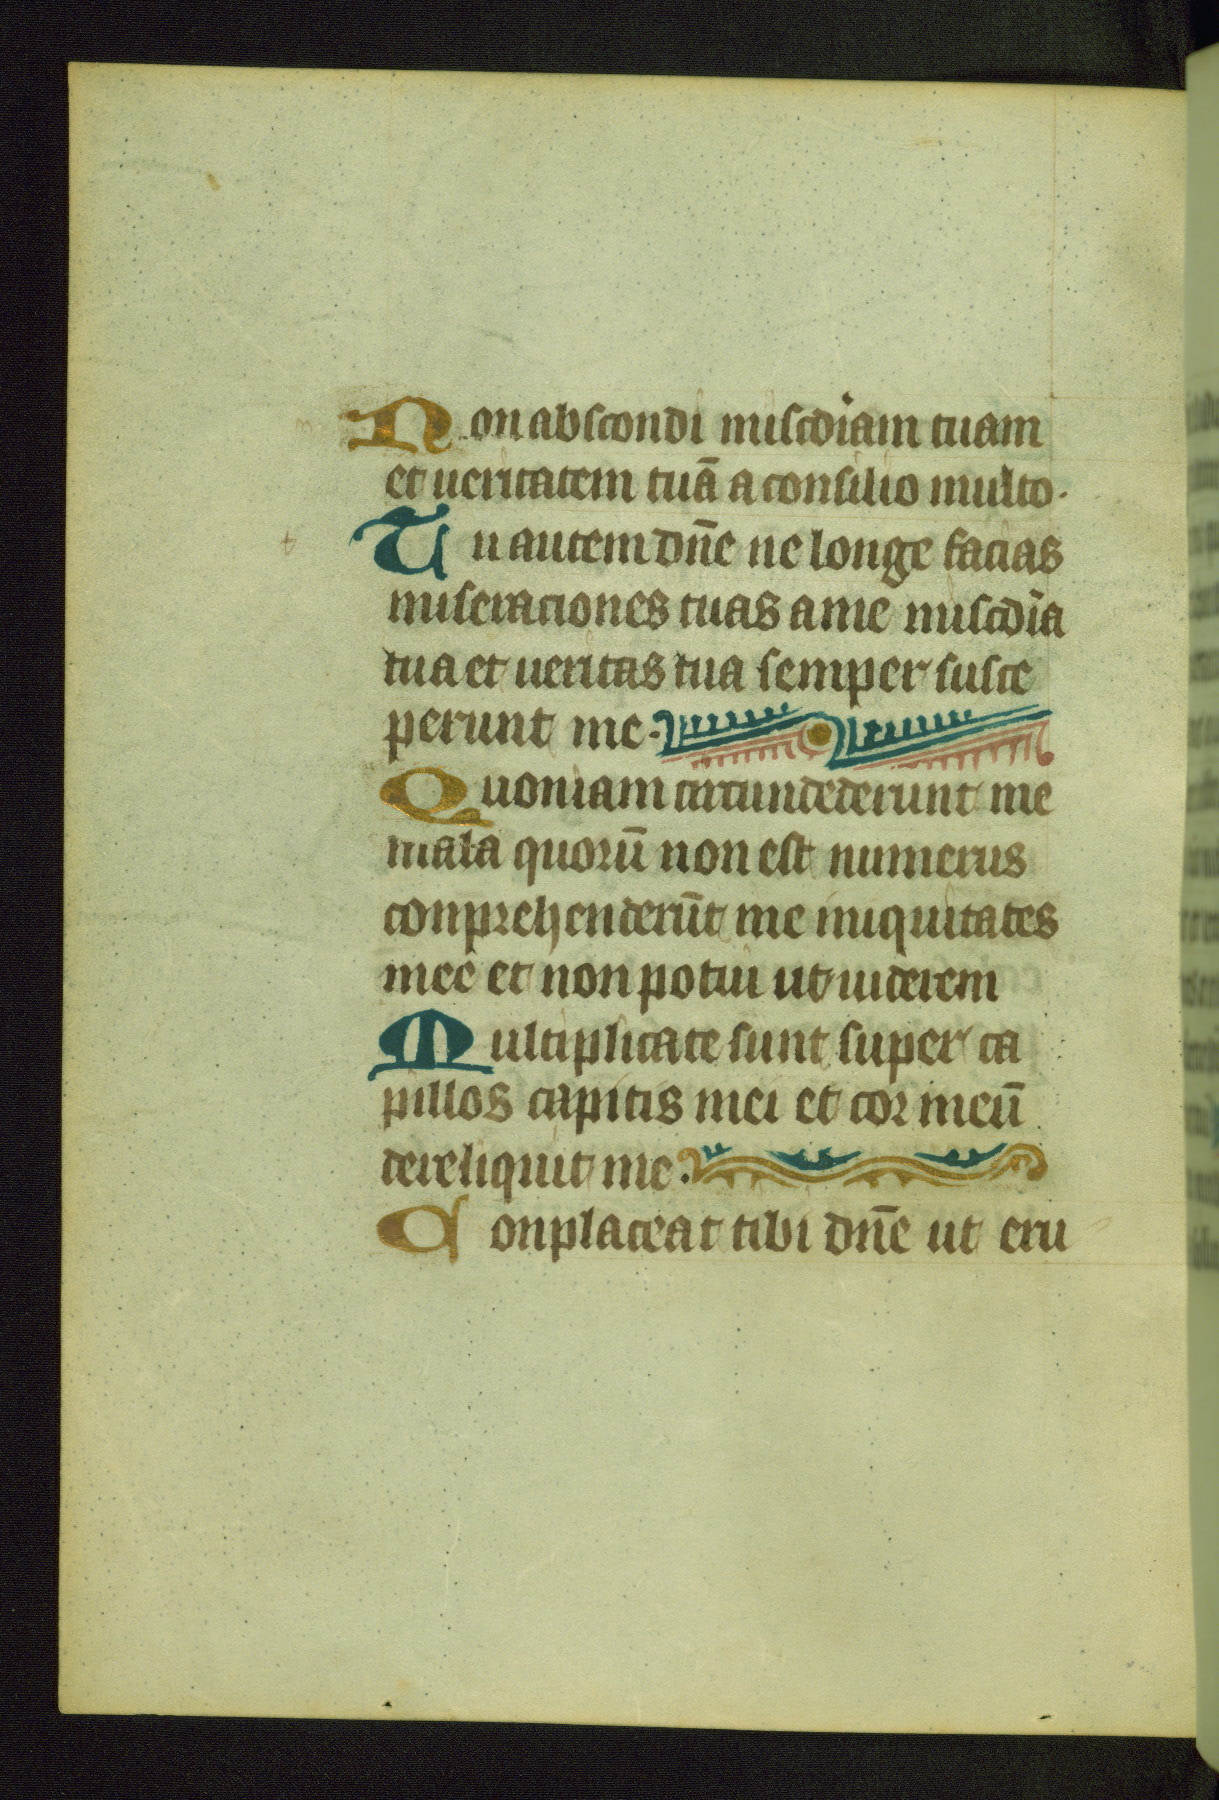 Non abscondi miscdiam tuam
et ueritatem tuā a consilio multo.
Tu autem dn̄e ne longe facias
miseraciones tuas a me miscdīa
tua et ueritas tua semper susce
perunt me.
Quoniam circumdederunt me
mala quorū non est numerus
conprehenderūt me iniquitates
mee et non potui ut uiderem
Multiplicate sunt super ca
pillos capitis mei et cor meū
dereliquit me.
Conplaceat tibi dn̄e ut eru